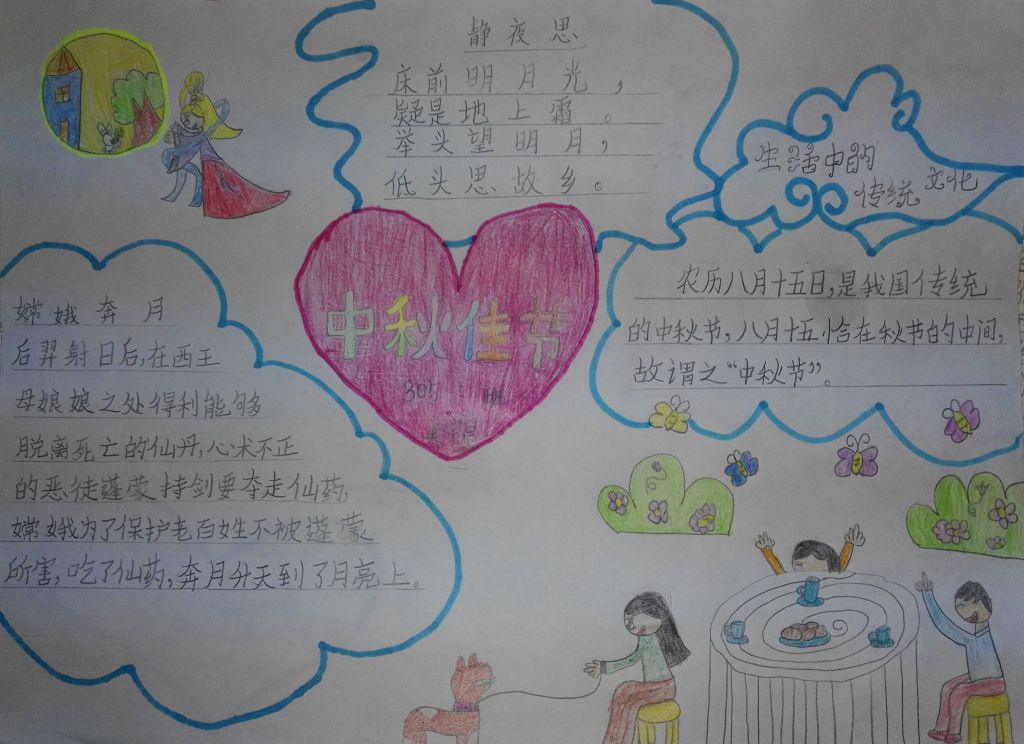 静夜思
床前明月光，
疑是地上霜。
举头望明月，
低头思故乡。
生活中的
传统文化
中秋佳节
305 班
农历八月十五日，是我国传统
的中秋节，八月十五恰在秋节的中间，
故谓之“中秋节”。
嫦娥奔月
后羿射日后，在西王
母娘娘之处得利能够
脱离死亡的仙丹，心术不正
的恶徒蓬蒙持剑要夺走仙药，
嫦娥为了保护老百姓不被蓬蒙
所害，吃了仙药，奔月升天到了月亮上。